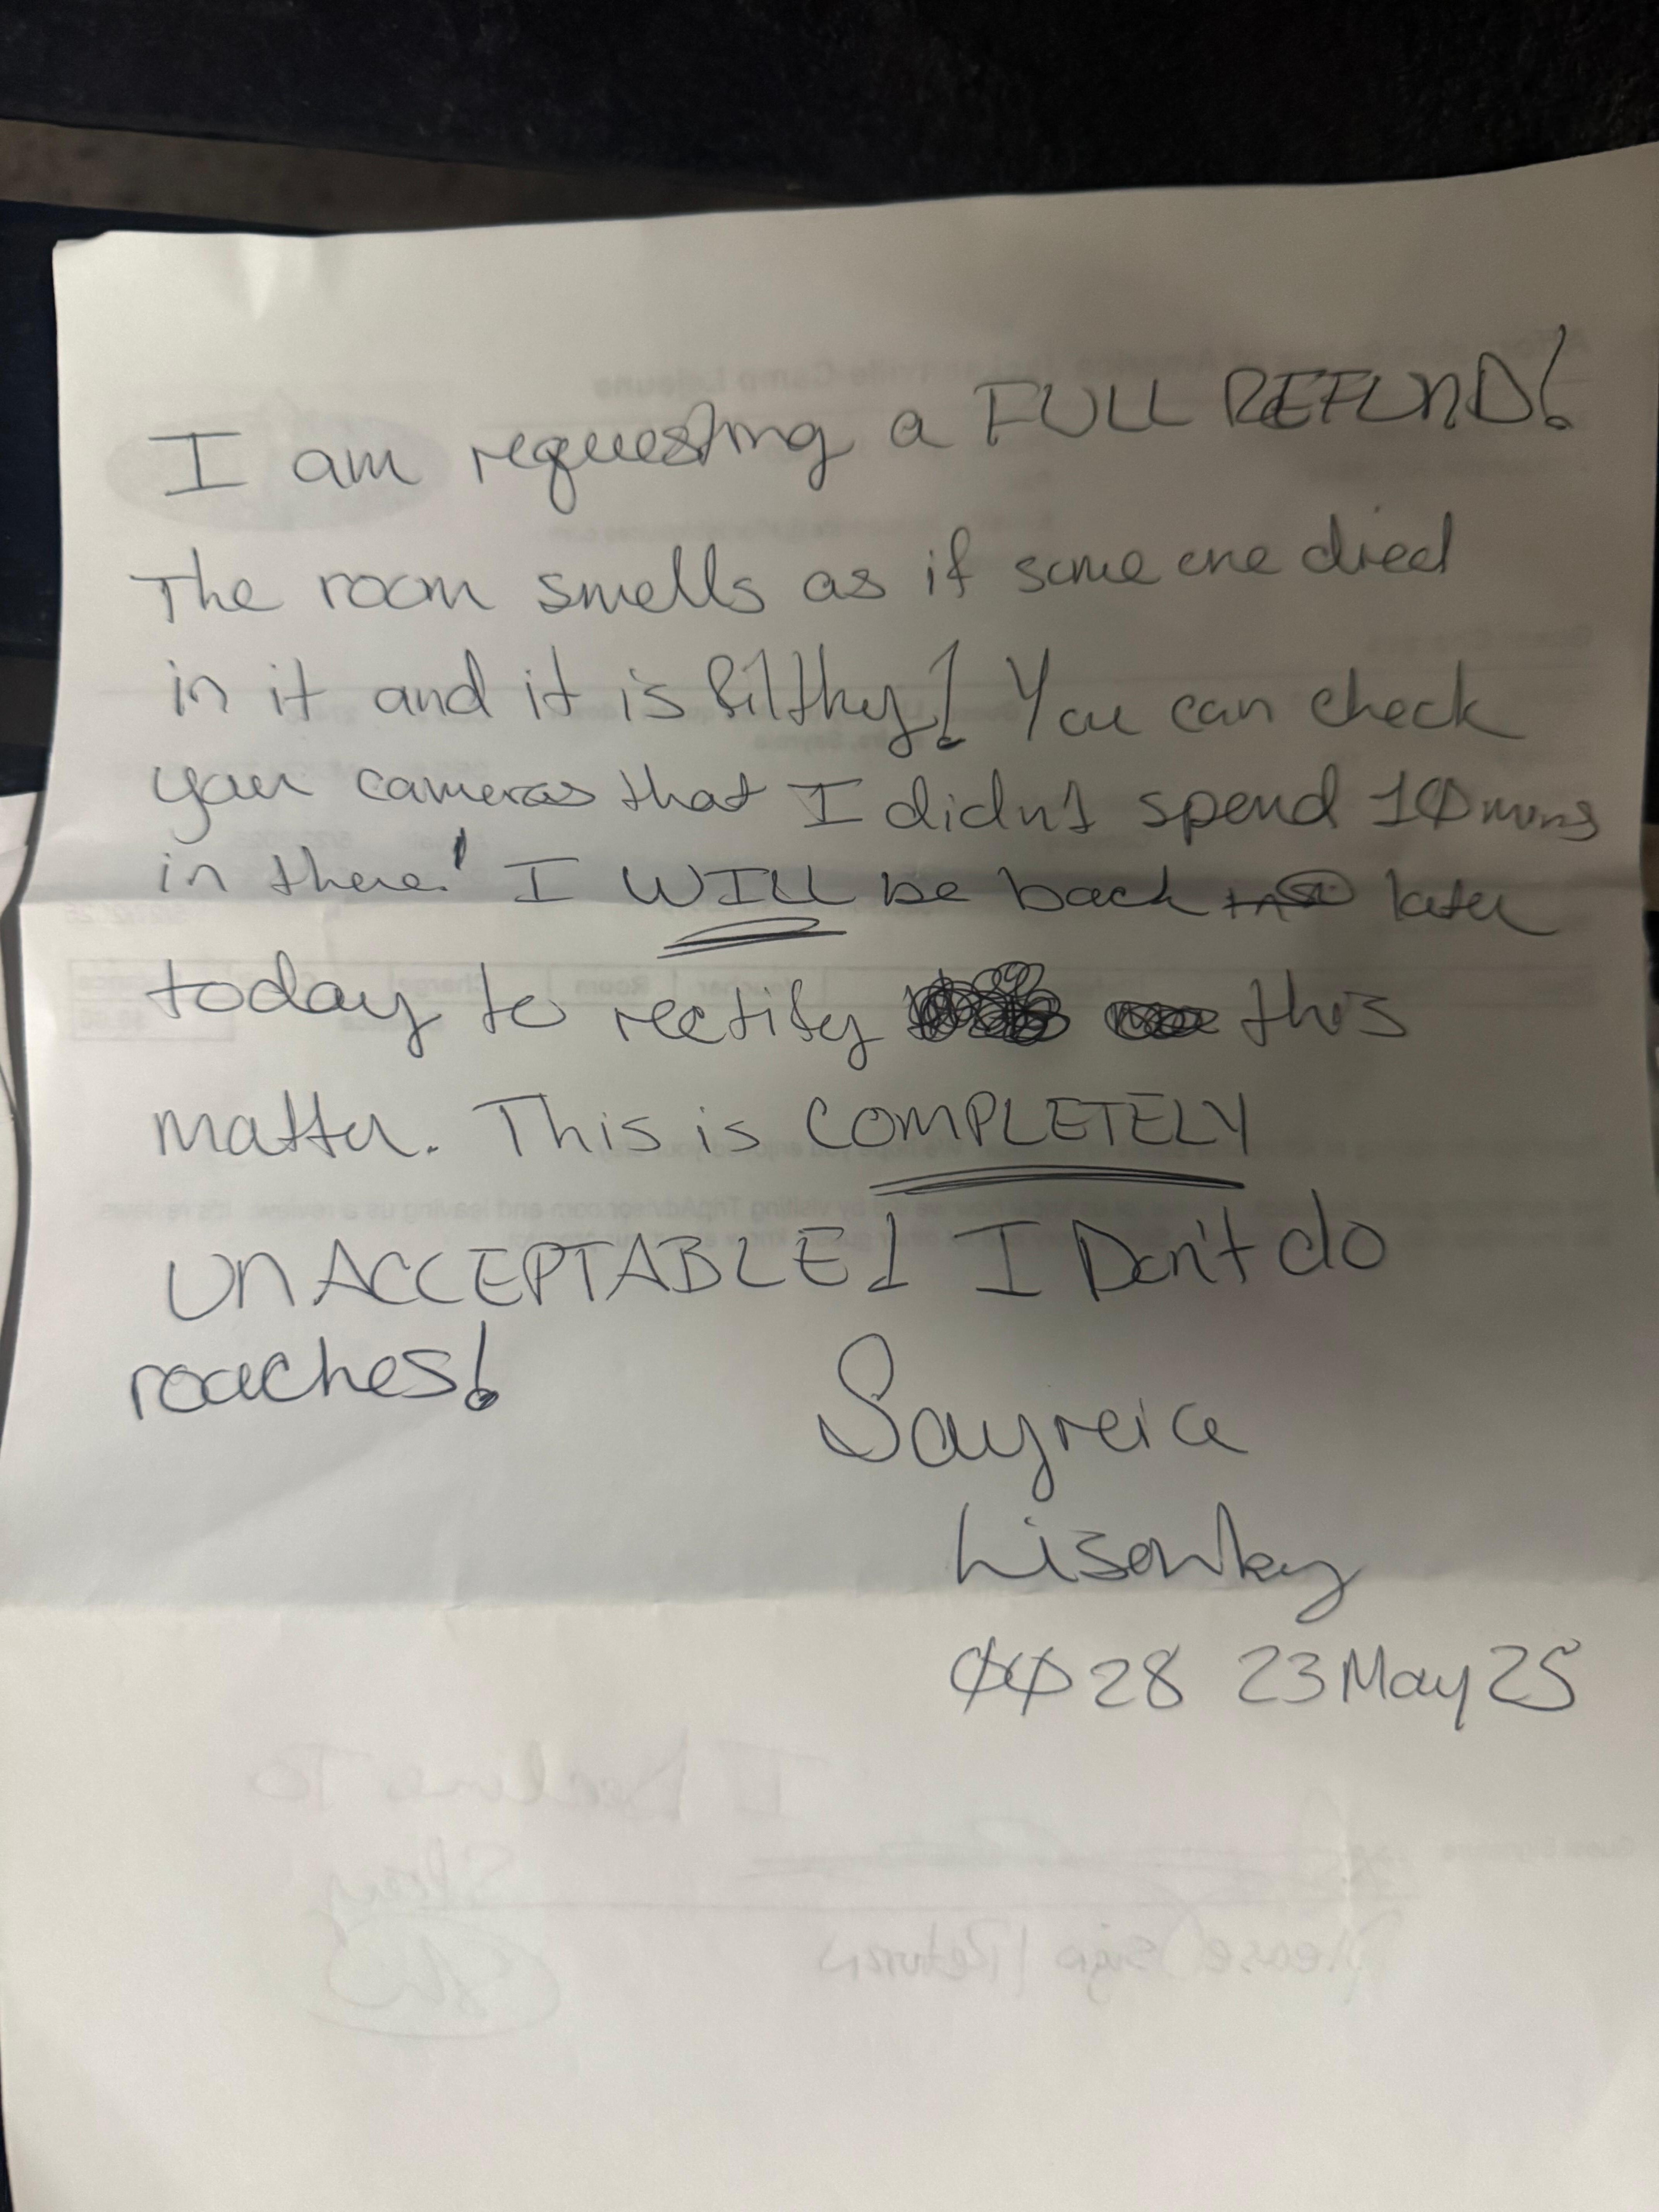 I am requesting a FULL REFUND!
The room smells as if some one died
in it and it is filthy! You can check
your cameras that I didn't spend 10 mins
in there! I WILL be back later
today to rectify this
matter. This is COMPLETELY
UNACCEPTABLE! I Don't do
roaches!
Sayreia
Lisenbey
0028 23 May 25